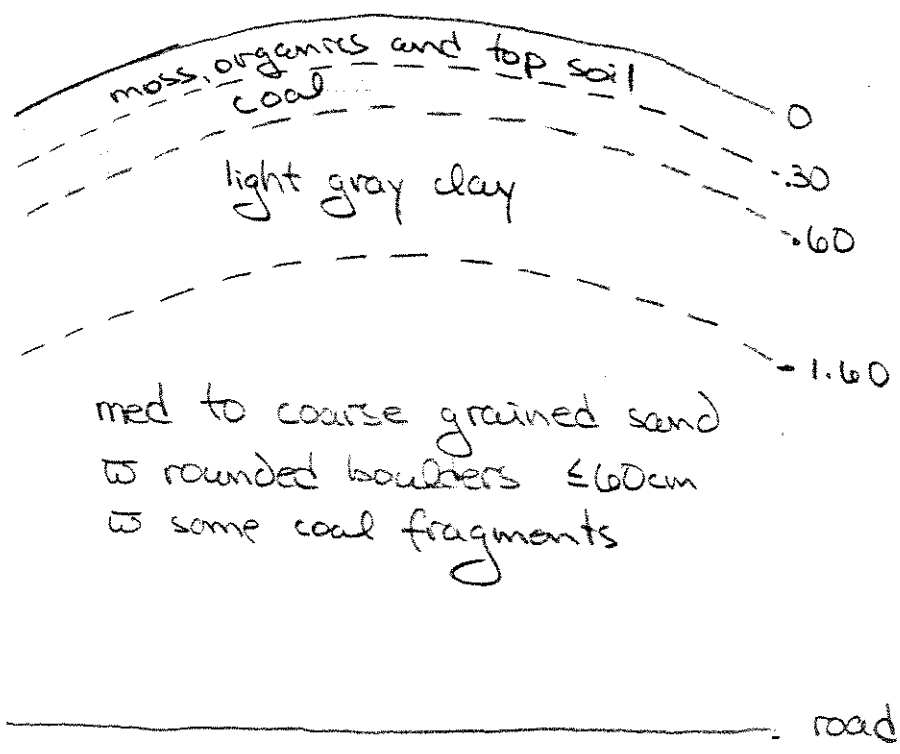 moss, organics and top soil
0
coal
.30
light gray clay
.60
1.60
med to coarse grained sand
w̅ rounded boulders ≤60cm
w̅ some coal fragments
road